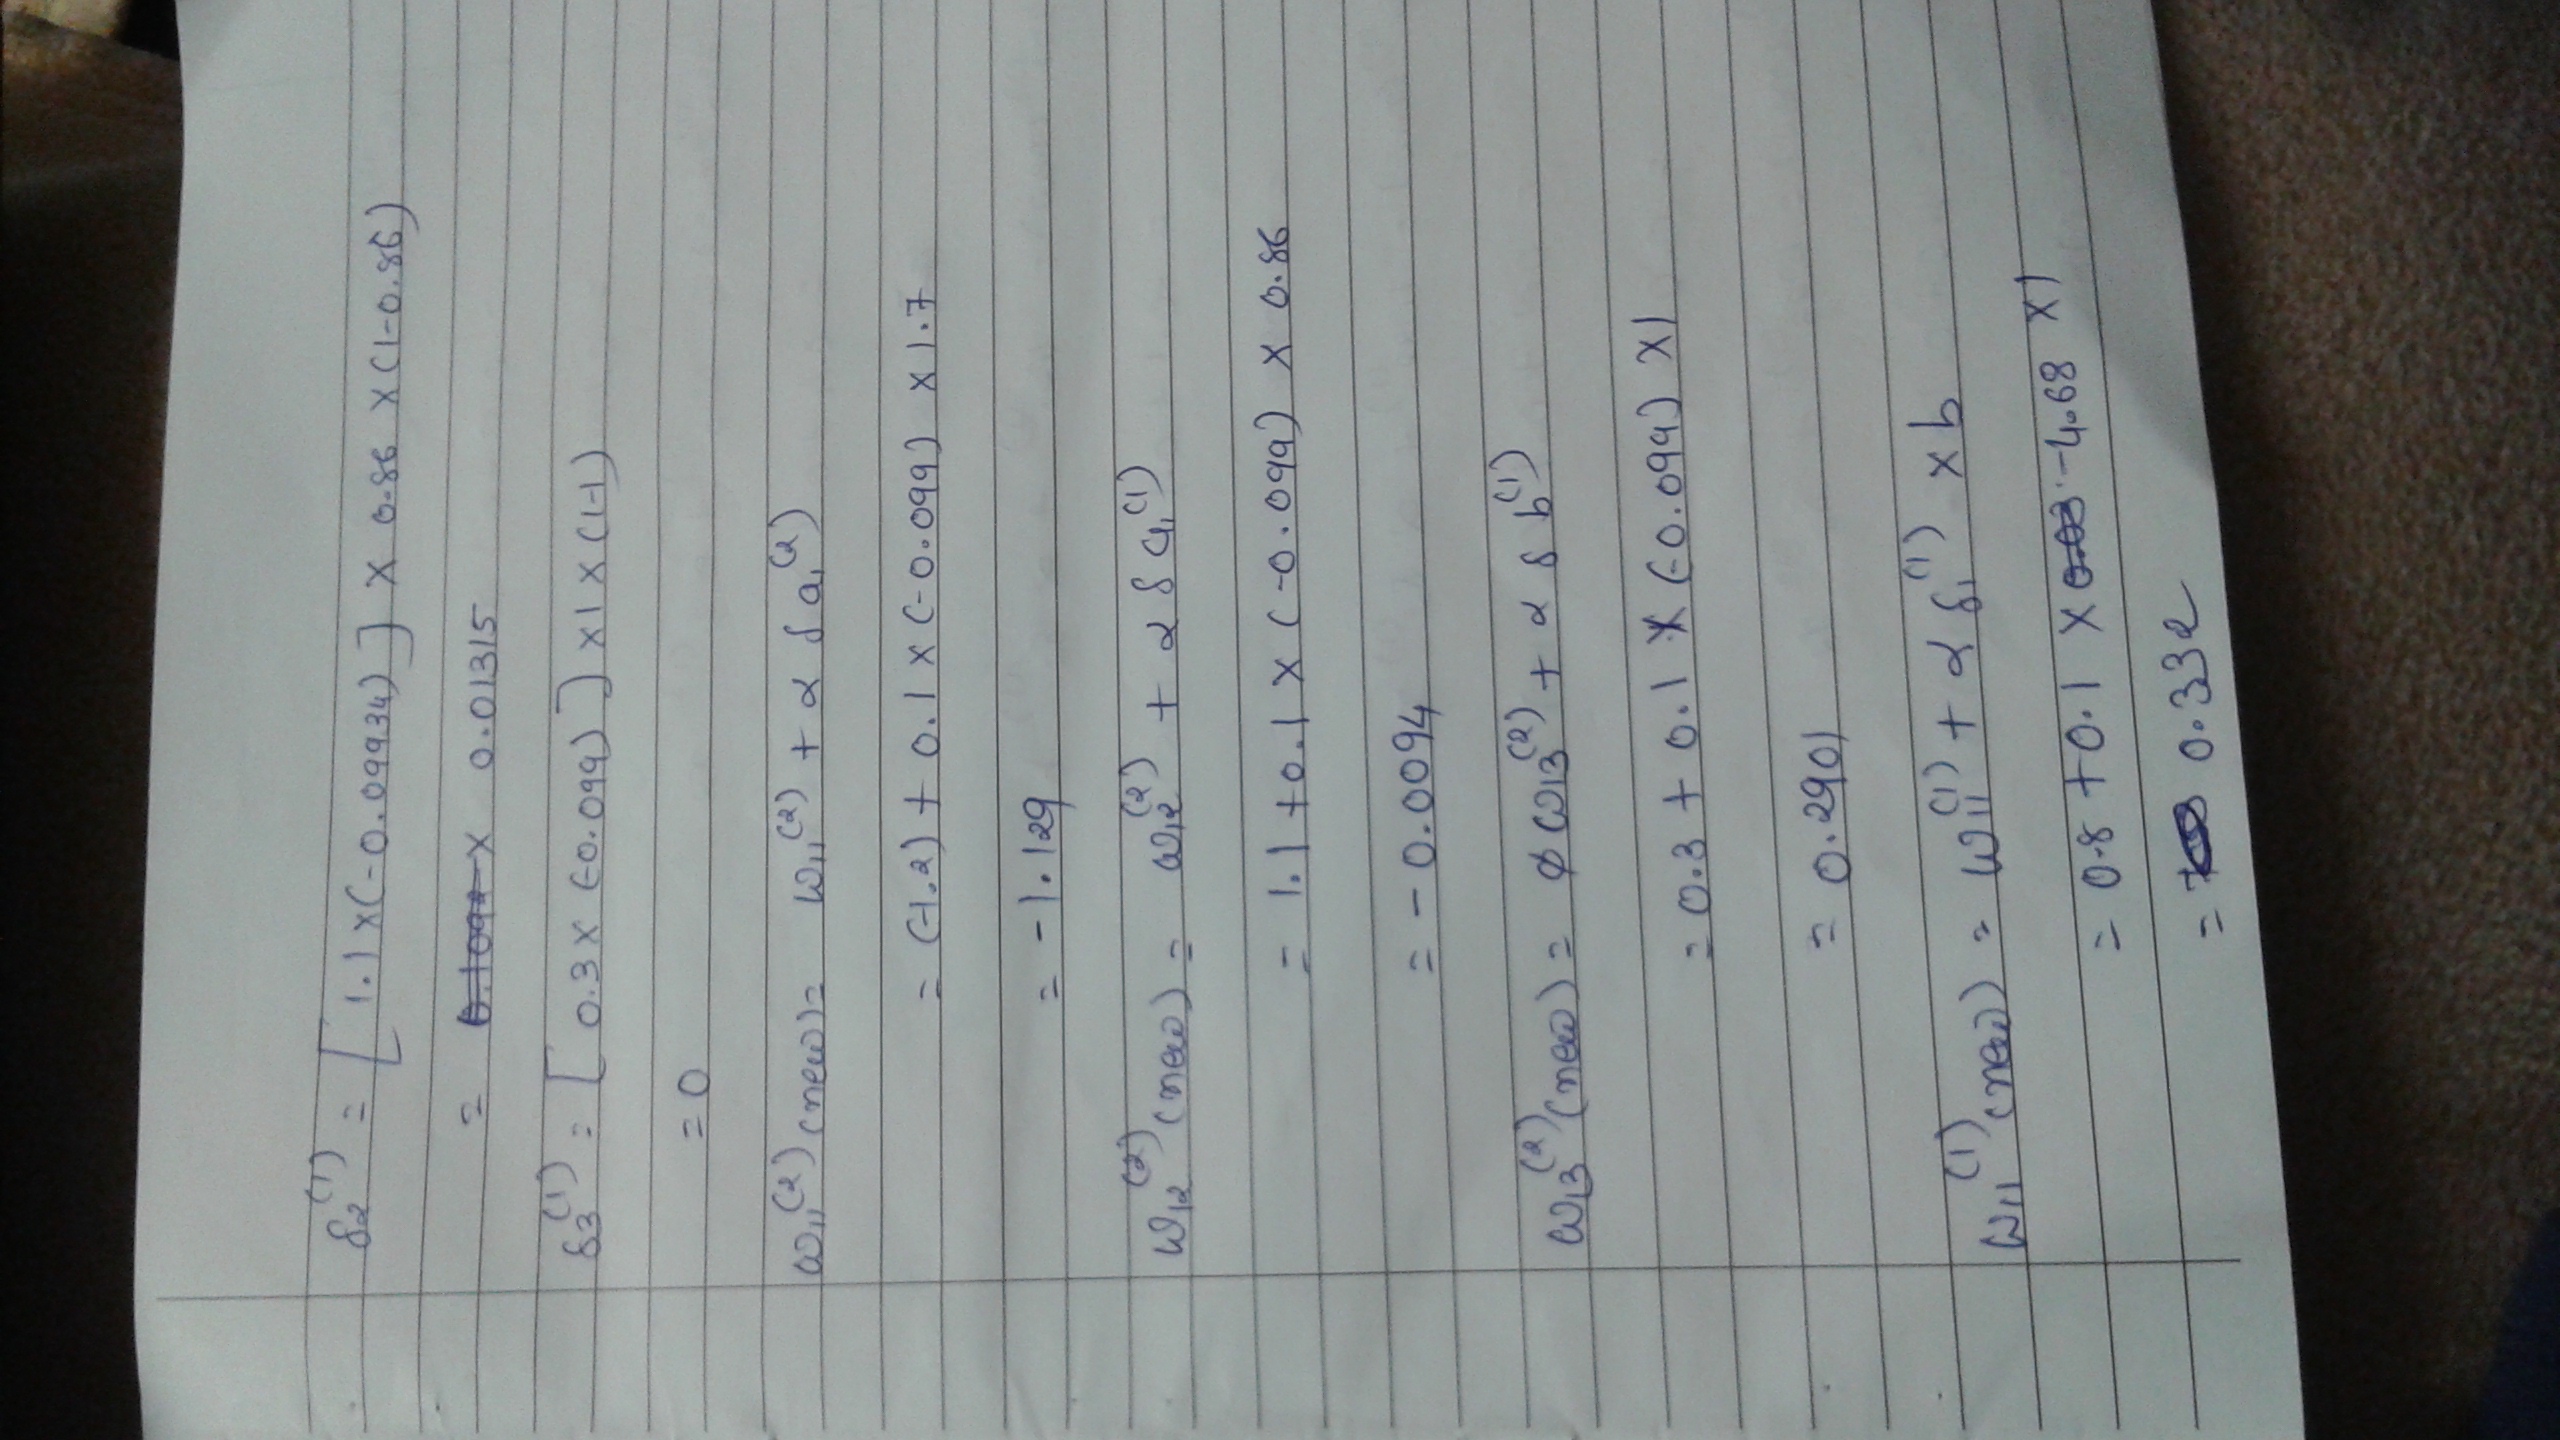 δ2^(1) = [ 1.1 x (-0.09934) ] x 0.86 x (1-0.86)
= x 0.01315
δ3^(1) = [ 0.3 x (-0.099) ] x 1 x (1-1)
= 0
ω11^(2) (new) = ω11^(2) + α δ a1^(2)
= (-1.2) + 0.1 x (-0.099) x 1.7
= -1.129
ω12^(2) (new) = ω12^(2) + α δ a1^(1)
= 1.1 + 0.1 x (-0.099) x 0.86
= -0.0094
ω13^(2) (new) = ω13^(2) + α δ b^(1)
= 0.3 + 0.1 x (-0.099) x 1
= 0.2901
ω11^(1) (new) = ω11^(1) + α δ1^(1) x b
= 0.8 + 0.1 x 0.03 -4.68 x 1
= 0.332